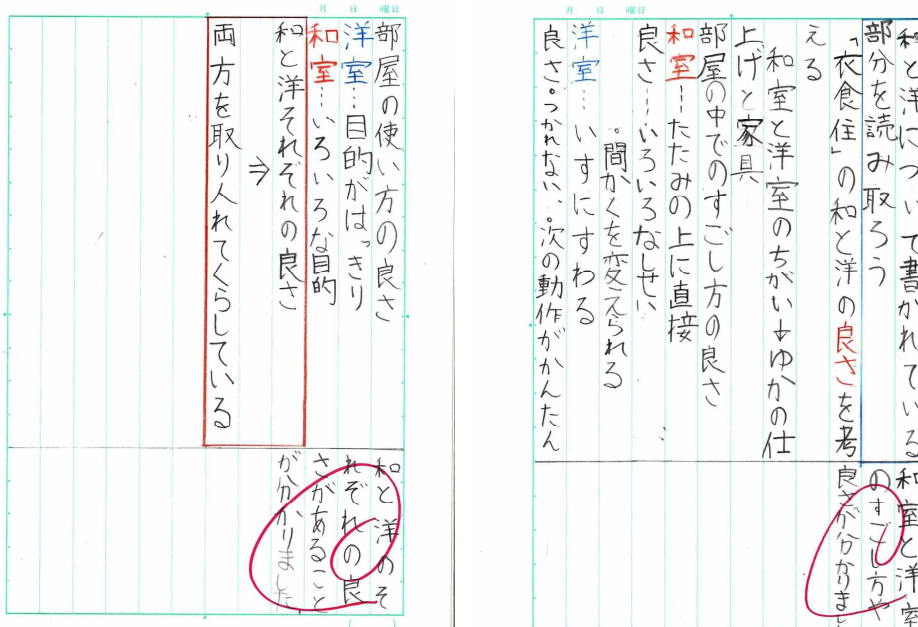 和と洋について書かれている
部分を読み取ろう
「衣食住」の和と洋の良さを考
える
和室と洋室のちがい→ゆかの仕
上げと家具
部屋の中でのすごし方の良さ
和室…たたみの上に直接
良さ…いろいろなしせい
・間かくを変えられる
洋室…いすにすわる
良さ・つかれない・次の動作がかんたん
和室と洋室
のすごし方や
良さが分かりまし
月 日 曜日
部屋の使い方の良さ
洋室…目的がはっきり
和室…いろいろな目的
和と洋それぞれの良さ
⇒
両方を取り入れてくらしている
和と洋のそ
れぞれの良
さがあること
が分かりました
月 日 曜日